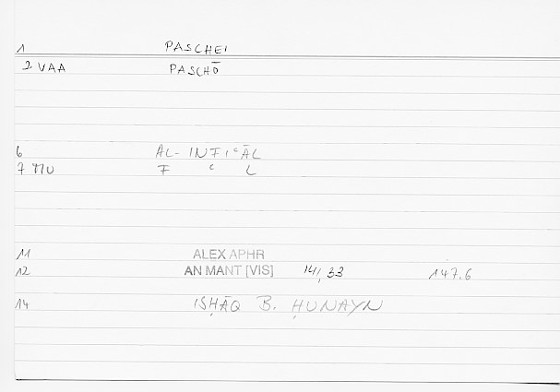 1 PASCHEI
2 VAA PASCHŌ
6 AL-INFIʿĀL
7 TIU F ʿ L
11 ALEX APHR
12 AN MANT [VIS] 14/, 33 147.6
14 ISḤĀQ B. ḤUNAYN